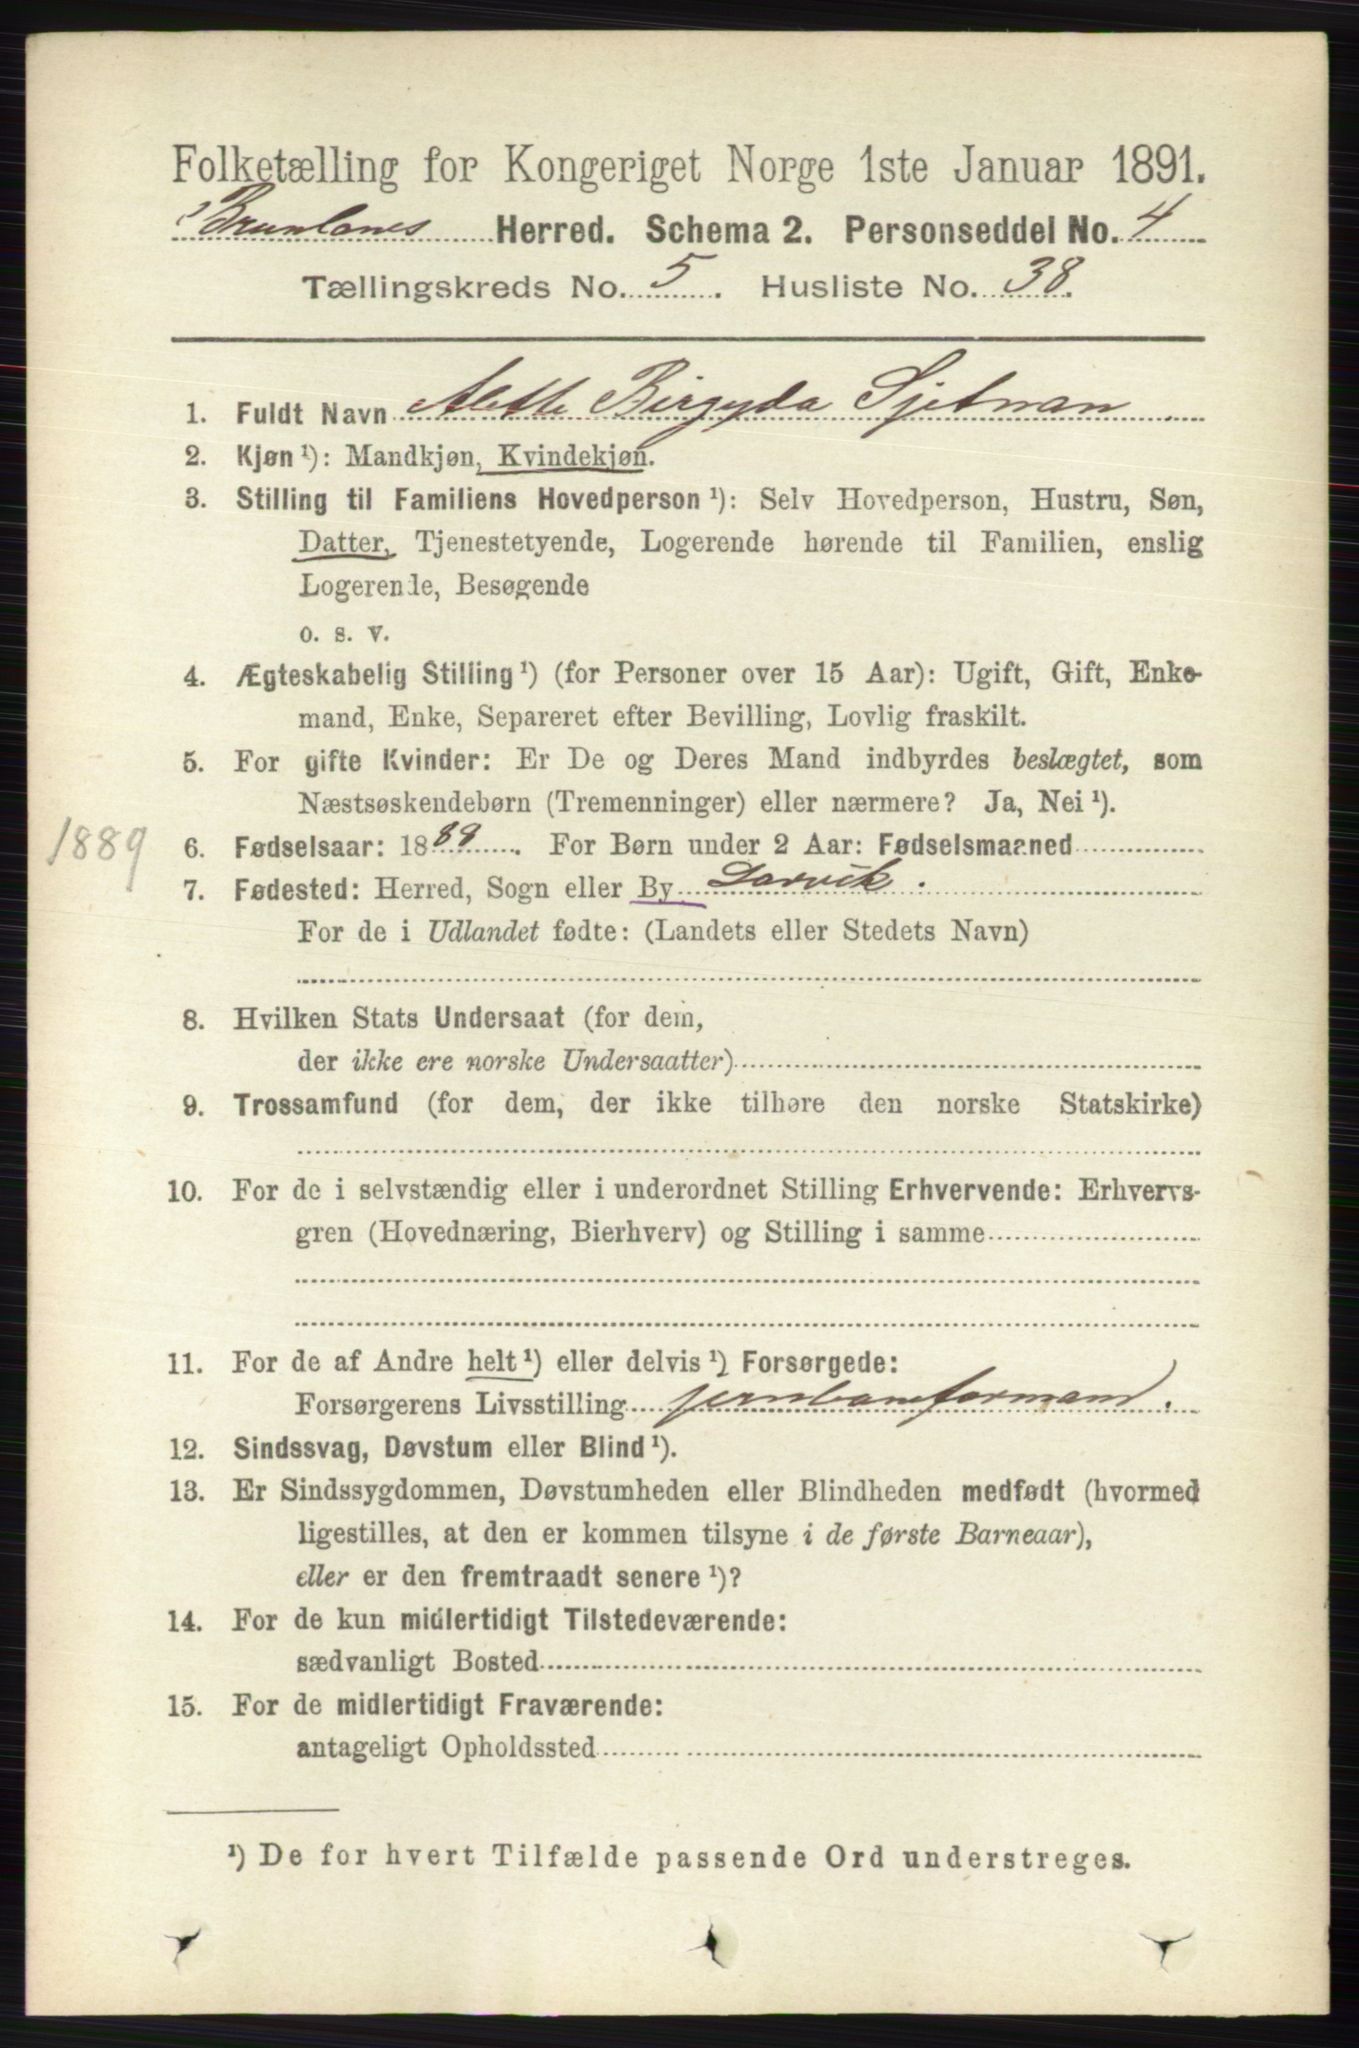 Folketælling for Kongeriget Norge 1ste Januar 1891.
Brunlanes Herred. Schema 2. Personseddel No. 4
Tællingskreds No. 5. Husliste No. 38.
1. Fuldt Navn Alette Birgyda Sjetnan
2. Kjøn ¹): Mandkjøn, Kvindekjøn.
3. Stilling til Familiens Hovedperson ¹): Selv Hovedperson, Hustru, Søn,
Datter, Tjenestetyende, Logerende hørende til Familien, enslig
Logerende, Besøgende
o. s. v.
4. Ægteskabelig Stilling ¹) (for Personer over 15 Aar): Ugift, Gift, Enke-
mand, Enke, Separeret efter Bevilling, Lovlig fraskilt.
5. For gifte Kvinder: Er De og Deres Mand indbyrdes beslægtet, som
Næstsøskendebørn (Tremenninger) eller nærmere? Ja, Nei ¹).
1889 6. Fødselsaar: 1889. For Børn under 2 Aar: Fødselsmaaned
7. Fødested: Herred, Sogn eller By Larvik.
For de i Udlandet fødte: (Landets eller Stedets Navn)
8. Hvilken Stats Undersaat (for dem,
der ikke ere norske Undersaatter)
9. Trossamfund (for dem, der ikke tilhøre den norske Statskirke)
10. For de i selvstændig eller i underordnet Stilling Erhvervende: Erhvervs-
gren (Hovednæring, Bierhverv) og Stilling i samme
11. For de af Andre helt ¹) eller delvis ¹) Forsørgede:
Forsørgerens Livsstilling jernbaneformand.
12. Sindssvag, Døvstum eller Blind ¹).
13. Er Sindssygdommen, Døvstumheden eller Blindheden medfødt (hvormed
ligestilles, at den er kommen tilsyne i de første Barneaar),
eller er den fremtraadt senere ¹)?
14. For de kun midlertidigt Tilstedeværende:
sædvanligt Bosted
15. For de midlertidigt Fraværende:
antageligt Opholdssted
¹) De for hvert Tilfælde passende Ord understreges.